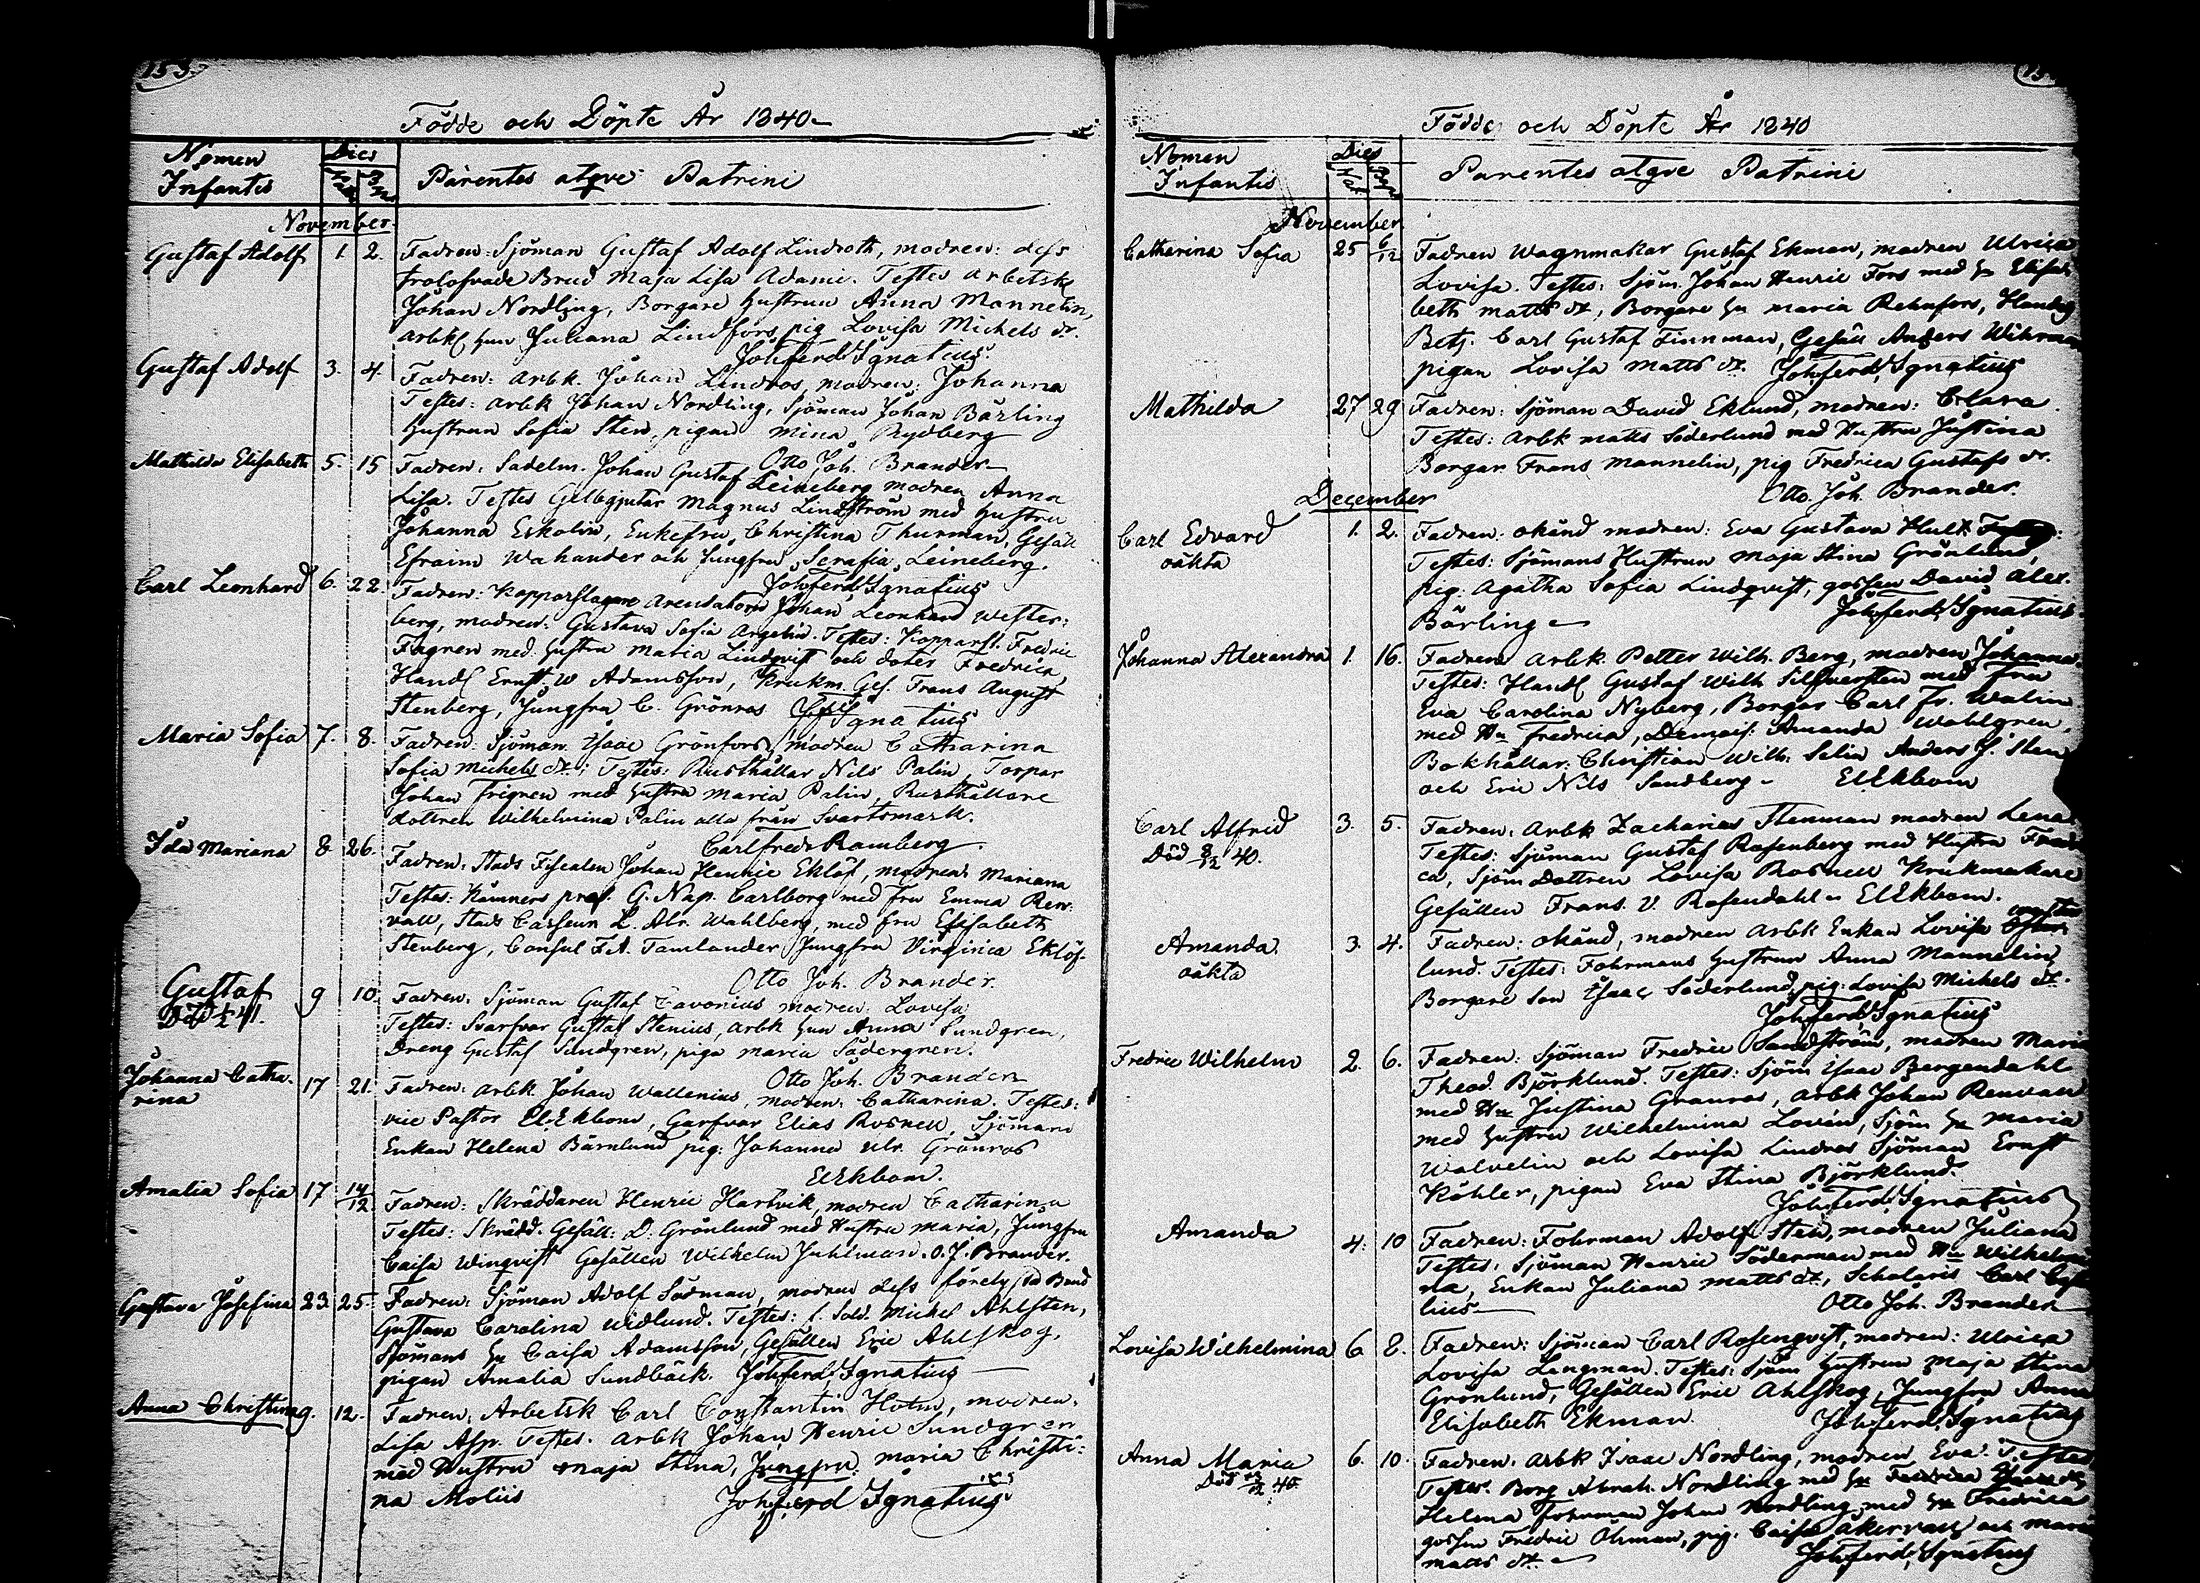 153.
Födde och Döpte År 1840
Nomen
Infantis
Dies
Parentes atqve Patrini
November
Gustaf Adolf 1. 2. Fadren: Sjöman Gustaf Adolf Lindroth, modren: dess
trolofvade Brud Maja Lisa Adami. Testes Arbetsk
Johan Nordling, Borgare Hustrun Anna Mannelin,
arbk hun Juliana Lindfors, pig Lovisa Michels dr.
Joh. ferd. Ignatius.
Gustaf Adolf 3. 4. Fadren: Arbk. Johan Lindros, modren: Johanna
Testes: arbk Johan Nordling, Sjöman Johan Bärling
Hustrun Sofia Sten, pigan Mina Rydberg
Otto Joh. Brander
Mathilda Elisabeth 5. 15 Fadren: Sadelm. Johan Gustaf Leineberg modren Anna
Lisa. Testes Gelbgjutar Magnus Lindström med Hustru
Johanna Eskolin, Enkefru Christina Thurman, Gesäll
Efraim Wahander och Jungfru Serafia Leineberg.
Joh. ferd. Ignatius
Carl Leonhard 6. 22. Fadren: Kopparslagare Arendatorn Johan Leonhard Wester:
berg, modren: Gustava Sofia Argelin. Testes: Kopparsl. Fredric
Fagren med hustru Maria Lindqvist och doter Fredrica,
Handl Ernst W Adamsson, Krukm. Ges. Frans August
Stenberg, Jungfru C. Grönros Ignatius
Maria Sofia 7. 8. Fadren: Sjöman Isaac Grönfors, modren Catharina
Sofia Michels dr; Testes: Rusthållar Nils Palin, Torpar
Johan Frigren med hustru Maria Palin, Rusthållare
dottren Wilhelmina Palin alla från Svartsmark.
Carl fredr Ramberg.
Ida Mariana 8. 26. Fadren: Stads Fiscalen Johan Henric Eklöf, modren Mariana
Testes: Kämners pres. G. Nap. Carlborg med fru Emma Ren:
vall, Stads Casseun L. Alr. Wahlberg, med fru Elisabeth
Stenberg, Consul F.A. Tamlander, Jungfru Virginia Eklöf.
Otto Joh. Brander.
Gustaf 9 10. Fadren: Sjöman Gustaf Cavonius modren: Lovisa
Testes: Svarfvar Gustaf Stenius, arbk hun Anna Sundgren,
Dreng Gustaf Sundgren, piga Maria Södergren.
Otto Joh. Brander
Johanna Catha-
rina 17 21. Fadren: arbk Johan Wallenius, modren: Catharina. Testes:
vice Pastor El. Ekbom, Garfvar Elias Rosnell, Sjömans
Enkan Helena Bärnlund pig: Johanna Ulr. Grönros
El Ekbom.
Amalia Sofia 17 14/12 Fadren: Skräddaren Henric Hartvik, modren Catharina
Testes: Skrädd. Gesäll: D. Grönlund med Hustru Maria, Jungfru
Caisa Winqvist Gesällen Wilhelm Juhlman. O. J. Brander.
Gustava Josefina 23 25. Fadren: Sjöman Adolf Sådman, modren dess förelofvad Brud
Gustava Carolina Widlund. Testes: f. Sold. Michel Ahlsten,
Sjömans hu Caisa Adamsson, Gesällen Eric Ahlskog,
pigan Amalia Sundbäck. Joh. ferd. Ignatius
Anna Christina 9. 12. Fadren: Arbetsk Carl Constantin Holm, modren:
Lisa Asp. Testes: arbk Johan Henric Sundgren
med Hustru Maja Stina, Jungfru: Maria Christi:
na Molius Joh. ferd Ignatius
Födde och Döpte År 1840
Nomen
Infantis
Dies
Nat
Bap
Parentes atqve Patrini
November
Catharina Sofia 25 6/12 Fadren Wagnmakar Gustaf Ekman, modren Ulrica
Lovisa. Testes: Sjöm. Johan Henric Fors med hu Elisa
beth Matts dr, Borgare hu Maria Rehnfors, Handg
Betj. Carl Gustaf Finnman, Gesäll Anders Wihrman
pigan Lovisa Matts dr. Joh. ferd. Ignatius
Mathilda 27 29 Fadren: Sjöman David Eklund, modren: Clara
Testes: arbk Matts Söderlund med Hustru Justina
Borgar. Frans Mannelin, pig Fredrica Gustafs dr.
Otto Joh. Brander.
December
Carl Edvard
oäkta 1. 2. Fadren: okänd modren: Eva Gustava Hult
Testes: Sjömans Hustrun Maja Stina Grönlund,
pig: Agatha Sofia Lindqvist, gossen David Alex.
Bärling Joh. ferd. Ignatius
Johanna Alexandra 1. 16. Fadren Arbk. Petter Wilh. Berg, modren Johanna.
Testes: Handl Gustaf Wilh Silfversten med Fru
Eva Carolina Nyberg, Borgar Carl Fr. Walin
med Hu Fredrica, Demois: Amanda Wahlgren,
Bokhållar: Christian Wilh: Selin Anders J. Sten
och Eric Nils Sandberg El Ekbom
Carl Alfrid
Död 8/12 40. 3. 5. Fadren: Arbk Zacharias Stenman modren Lena
Testes: Sjöman Gustaf Rosenberg med Hustru Fred
ca, Sjöm Dottren Lovisa Rosnell Krukmakare
Gesällen Frans. V. Rosendahl El Ekbom.
Amanda
oäkta 3. 4. Fadren: okänd, modren arbk Enkan Lovisa Wester
lund. Testes: Fohrmans Hustrun Anna Mannelin,
Borgare Son Isaac Söderlund, pig: Lovisa Michels dr.
Joh. ferd. Ignatius
Fredric Wilhelm 2. 6. Fadren: Sjöman Fredric Sandström, modren Maria
Theod. Björklund. Testes: Sjöm Isaac Bergendahl
med Hu Justina Granros, arbk Johan Renvall
med hustru Wilhelmina Lovén, Sjöm hu Maria
Walvelin och Lovisa Lindros Sjöman Ernst
Köhler, pigan Eva Stina Björklund.
Joh. ferd. Ignatius
Amanda 4. 10 Fadren: Fohrman Adolf Sten, modren Juliana
Testes: Sjöman Henric Söderman med Hu Wilhelmi
na, Enkan Juliana Matts dr, Scholaris Carl
lius Otto Joh. Brander
Lovisa Wilhelmina 6 8. Fadren: Sjöman Carl Rosenqvist, modren: Ulrica
Lovisa Langman. Testes: Sjöm hustrun Maja Stina
Grönlund, Gesällen Eric Ahlskog, Jungfru Anna
Elisabeth Ekman. Joh. ferd. Ignatius
Anna Maria 6. 10. Fadren: arbk Isaac Nordling, modren Eva.
Testes: Borg Abrah. Nordling med hu Fredrica
Helena Fohrman Johan Nordling med hu Fredrica
gossen Fredric Öhman, pig: Caisa Åkervall och Maria
Matts dr. Joh. ferd. Ignatius